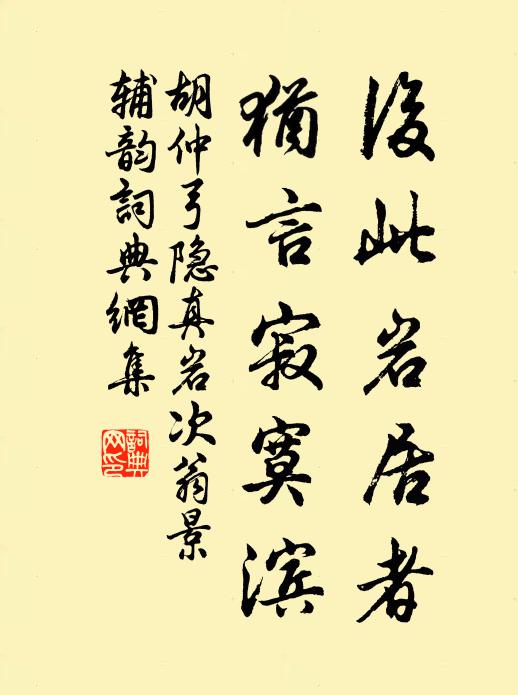 後此岩居者
猶言寂寞滨
胡仲弓隐真岩次翁景
辅韵詞典網集
詞典网印